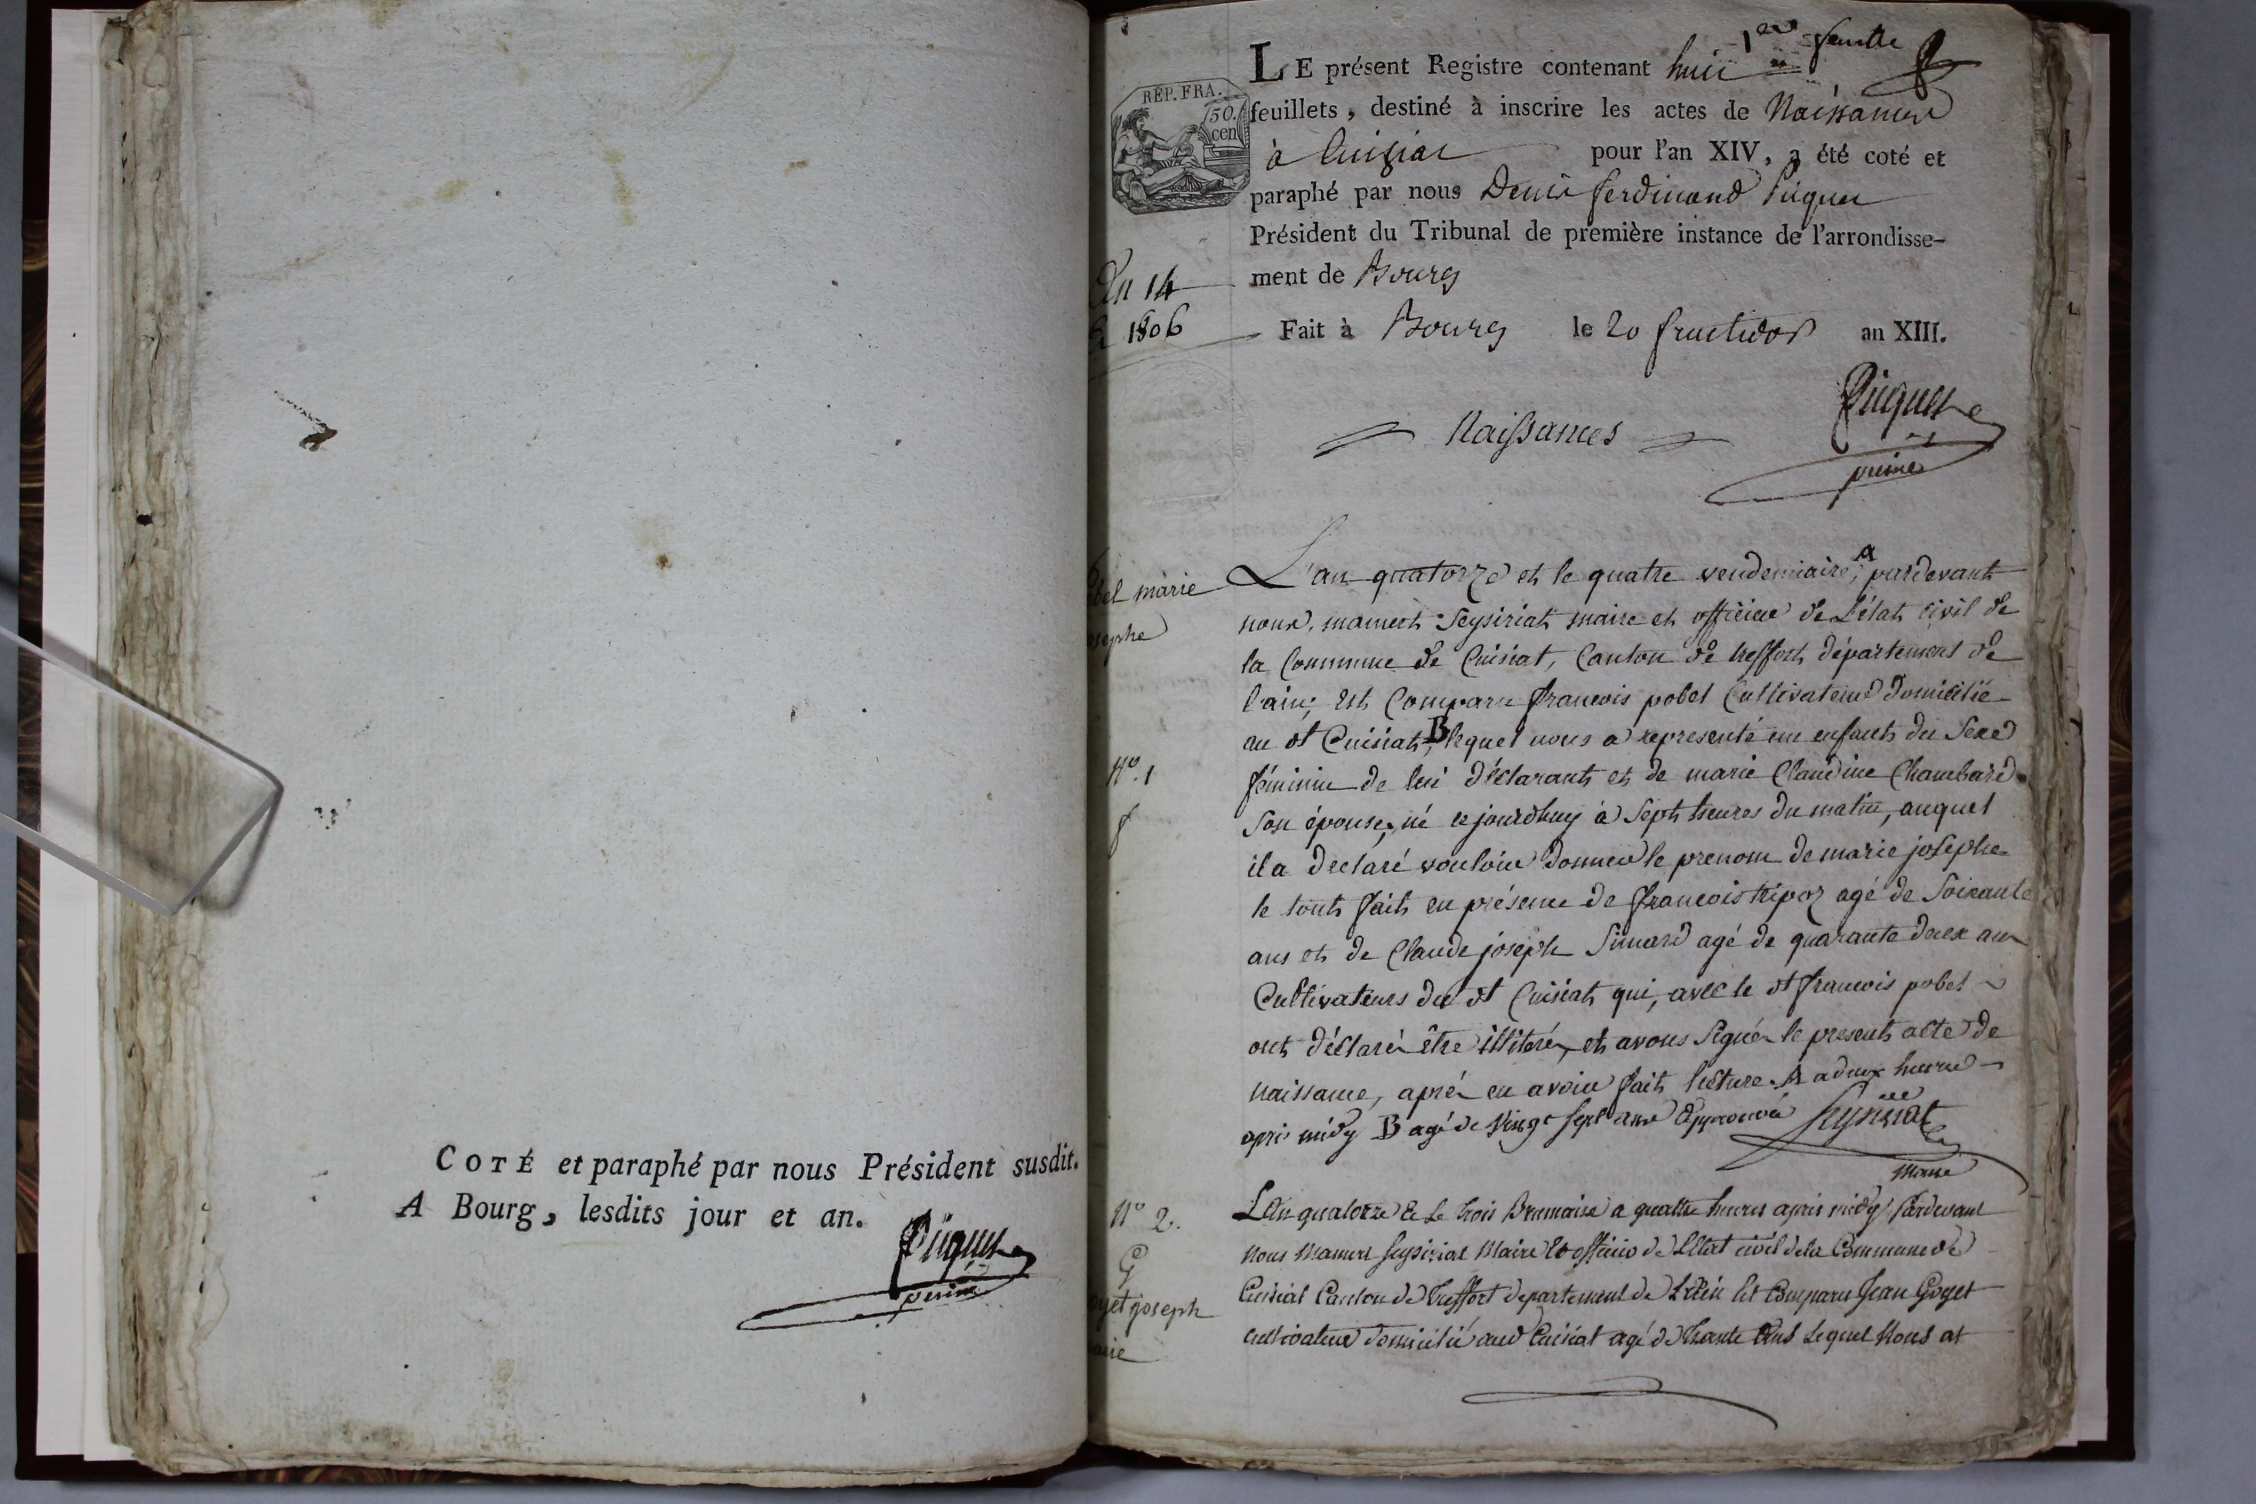 COTÉ et paraphé par nous Président susdit.
A Bourg, lesdits jour et an.
1er feuille
LE présent Registre contenant huit
REP. FRA.
50.
cen
feuillets, destiné à inscrire les actes de Naissances
à Cuisiat pour l'an XIV, a été coté et
paraphé par nous Denis ferdinand
Président du Tribunal de première instance de l'arrondisse-
ment de Bourg
An 14
1806
Fait à Bourg le 20 fructidor an XIII.
Naissances
L'an quatorze et le quatre vendemiaire, a pardevant
obel marie
nous, mamert Seysiriat maire et officier de L'état civil de
osephe
la Commune de Cuisiat, Canton de treffort département de
l'ain; est Comparu francois pobel Cultivateur domicilié
au dt Cuisiat, B lequel nous a representé un enfant du Sexe
N°. 1
féminin de lui déclarant et de marie Claudine Chambard
f
son épouse, né cejourdhuy à Sept heures du matin, auquel
il a declaré vouloir donner le prenom de marie josephe
le tout fait en présence de francois tripoz agé de Soixante
ans et de Claude joseph Simard agé de quarante deux ans
Cultivateurs du dt Cuisiat qui, avec le dt francois pobel
ont déclaré être illitérés, et avons signé le present acte de
naissance, après en avoir fait lecture. A a deux heures
apres midy B agé de Vingt sept ans Approuvée Seysiriat
maire
N° 2.
L'An quatorze & Le trois Brumaire a quattre heures apres midy, Pardevant
G
Nous Mamert Seysiriat Maire Et officier de L'Etat civil de la Commune de
oyet joseph
Cuisiat Canton de Treffort departement de L'Ain Est Comparu Jean Goyet
arie
cultivateur domicilié aud Cuisiat agé de trante Ans Lequel Nous at